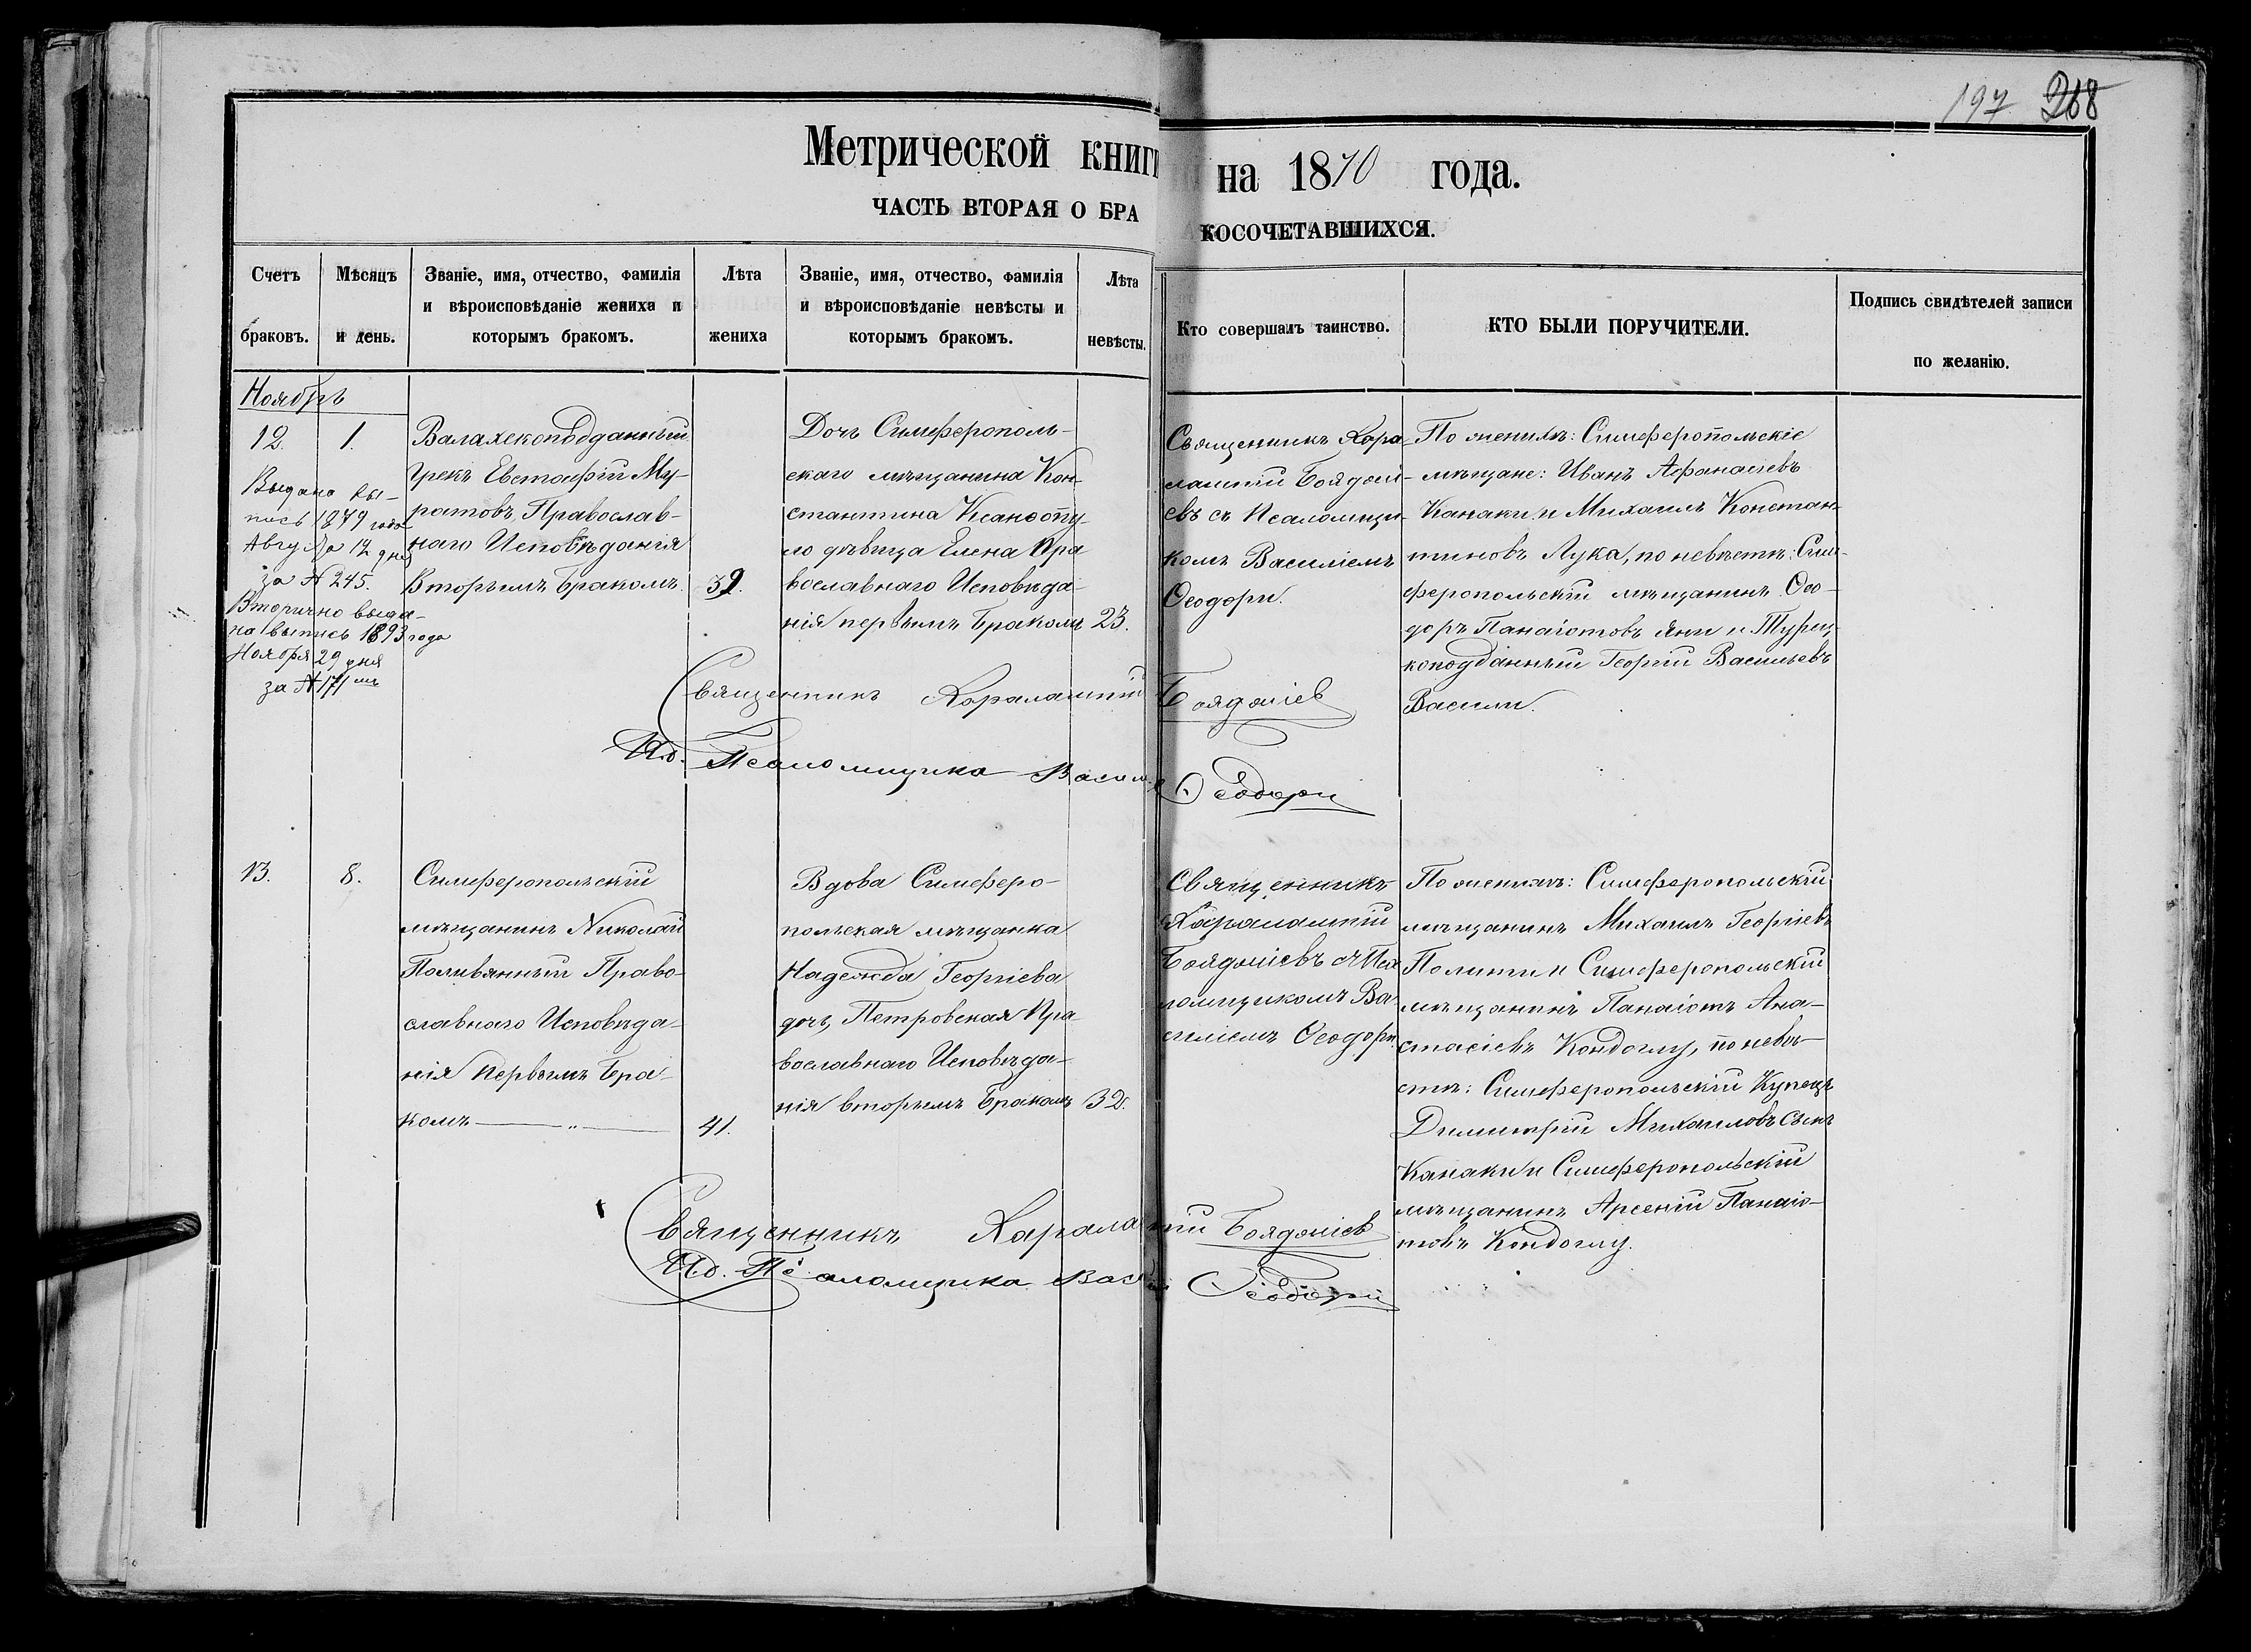 197 268
Метрической книги на 1870 года.
ЧАСТЬ ВТОРАЯ О БРАКОСОЧЕТАВШИХСЯ.
Счетъ браковъ.
Мѣсяцъ и день.
Званіе, имя, отчество, фамилія
и вѣроисповѣданіе жениха и
которымъ бракомъ.
Лѣта жениха
Званіе, имя, отчество, фамилія
и вѣроисповѣданіе невѣсты и
которымъ бракомъ.
Лѣта невѣсты.
Кто совершалъ таинство.
КТО БЫЛИ ПОРУЧИТЕЛИ.
Подпись свидѣтелей записи
по желанію.
Ноябрь
12. 1.
Выдана вы-
пись 1879 года
Августа 17 дня
за № 245.
Вторично выда-
на выпись 1893 года
Ноября 29 дня
за № 171
Валахскоподданный
Грекъ Евстафій Му-
ратовъ, Православ-
наго Исповѣданія
Вторымъ Бракомъ.
39.
Дочь Симферополь-
скаго мѣщанина Кон-
стантина Ксанѳопу-
ло дѣвица Елена Пра
вославнаго Исповѣда-
нія первымъ Бракомъ
23.
Священникъ Хара-
лампій Бояджі-
евъ съ Псаломщи-
комъ Василіемъ
Ѳеодори.
По женихѣ: Симферопольскіе
мѣщане: Иванъ Афанасіевъ
Канаки и Михаилъ Констан-
тиновъ Лука, по невѣстѣ: Сим-
феропольскій мѣщанинъ Ѳео-
доръ Панаіотовъ Яни и Турец-
коподданный Георгій Васильевъ
Васили.
Священникъ Харалампій Бояджіев
И.д. Псаломщика Васили Ѳеодори
13. 8.
Симферопольскій
мѣщанинъ Николай
Поливянный Право-
славнаго Исповѣда-
нія Первымъ Бра-
комъ
41.
Вдова Симферо-
польская мѣщанка
Надежда Георгіева
дочь, Петровская Пра
вославнаго Исповѣда-
нія вторымъ Бракомъ
32.
Священникъ
Харалампій
Бояджіевъ съ Пса
ломщикомъ Ва-
силіемъ Ѳеодори.
По женихѣ: Симферопольскій
мѣщанинъ Михаилъ Георгіевъ
Полити и Симферопольскій
мѣщанинъ Панаіотъ Ана-
стасіевъ Кондоглу, по невѣ-
стѣ: Симферопольскій Купецъ
Димитрій Михаиловъ сынъ
Канаки и Симферопольскій
мѣщанинъ Арсеній Панаіо-
товъ Кондоглу.
Священникъ Харалампій Бояджіев
И.д. Псаломщика Васили Ѳеодори